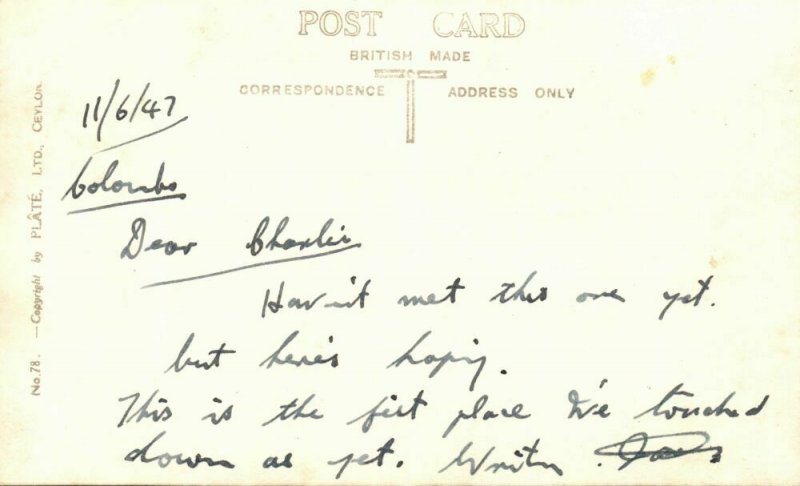 POST CARD
BRITISH MADE
CORRESPONDENCE ADDRESS ONLY
No. 78. — Copyright by PLÂTÉ, LTD., CEYLON.
11/6/47
Colombo
Dear Charlie
Hav'nt met this one yet.
but here's hoping.
This is the first place We touched
down as yet.